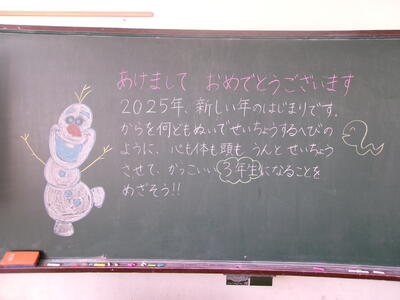 あけまして おめでとうございます
2025年、新しい年のはじまりです。
からを何どもぬいでせいちょうするへびの
ように、心も体も頭も うんとせいちょう
させて、かっこいい3年生になることを
めざそう!!